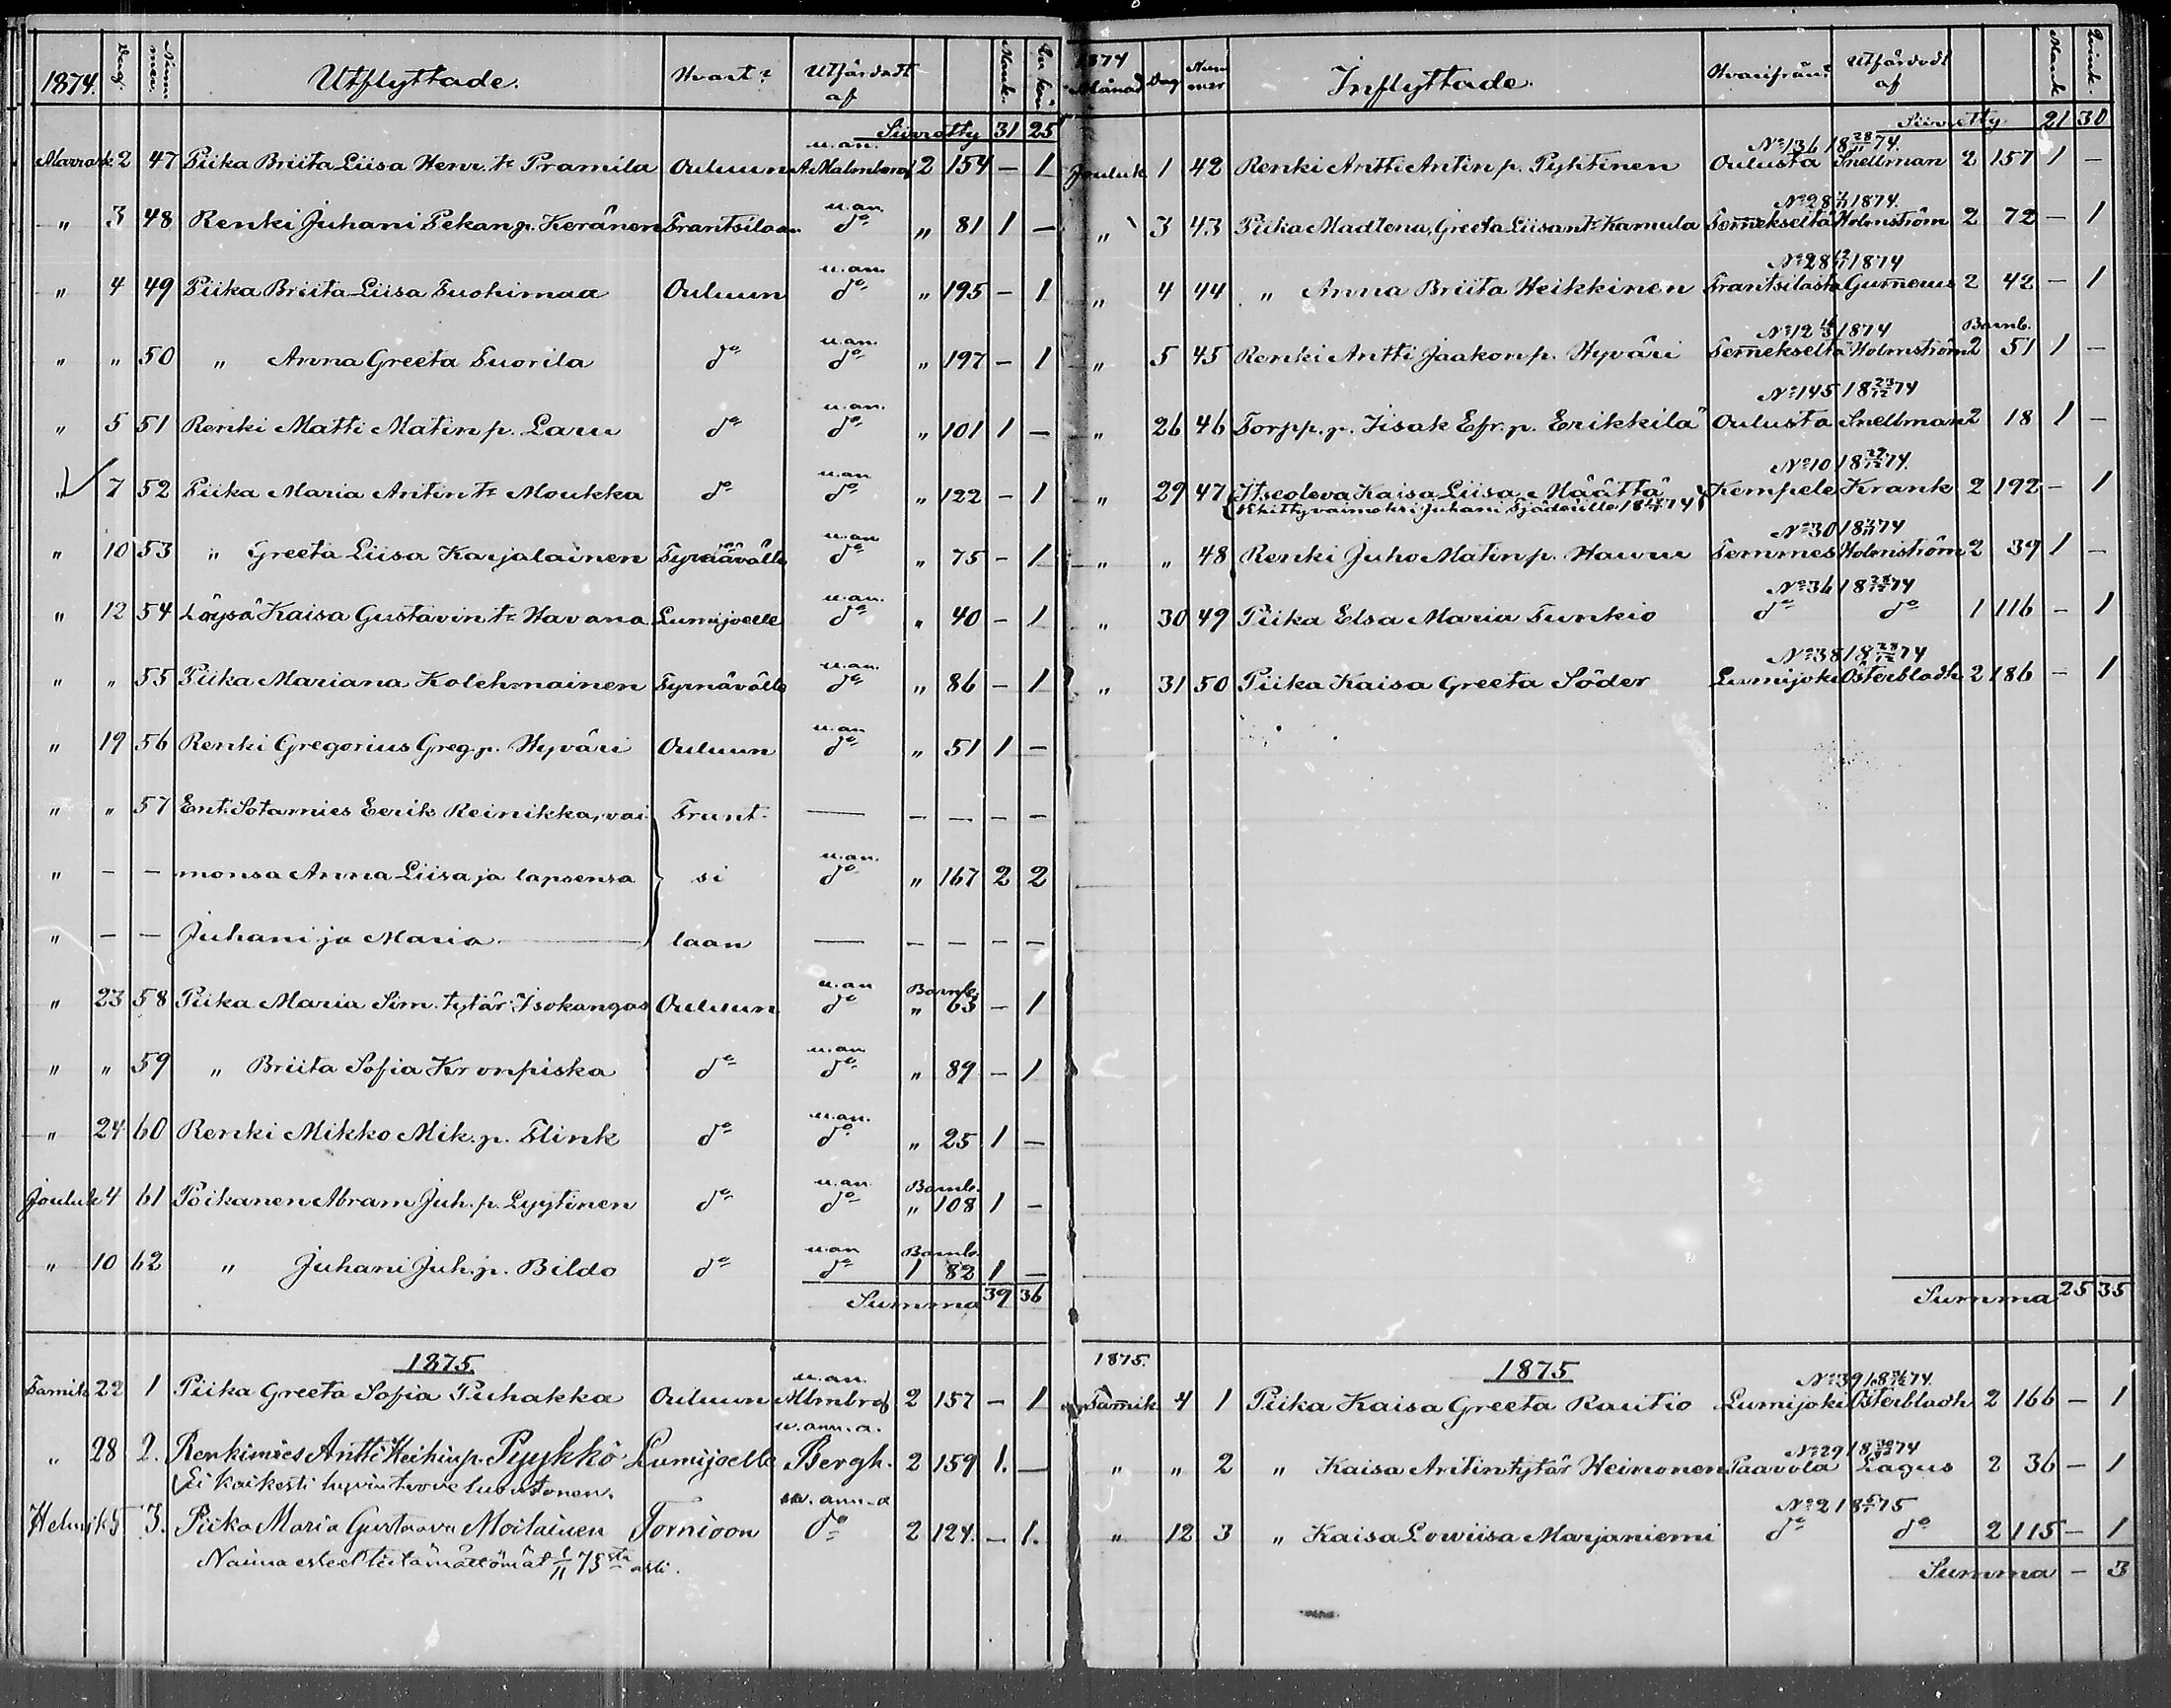 1874. Dag. Nummer. Utflyttade. Hvart? Utfärdadt af Mank. Qvinkön.
Siirretty 31 25
u. an.
Marrask 2 47 Piika Briita Liisa Henr. tr Pramila Ouluun A. Malmberg 2 154 — 1
u. an.
" 3 48 Renki Juhani Pekan p. Keränen Frantsilaan do " 81 1 —
u. an.
" 4 49 Piika Briita Liisa Tuohimaa Ouluun do " 195 — 1
u. an.
" " 50 " Anna Greeta Tuorila do do " 197 — 1
u. an.
" 5 51 Renki Matti Matinp. Laru do do " 101 1 —
u. an
" 7 52 Piika Maria Antin tr Moukka do do " 122 — 1
u. an
" 10 53 " Greeta Liisa Karjalainen Tyrnävälle do " 75 — 1
u. an.
" 12 54 Löysä Kaisa Gustavin tr Havana Lumijoelle do " 40 — 1
u. an.
" " 55 Piika Mariana Kolehmainen Tyrnävälle do " 86 — 1
u. an
" 19 56 Renki Gregorius Greg. p. Hyväri Ouluun do " 51 1 —
" " 57 Ent. Sotamies Eerik Reinikka, vai- Frant- — — — — —
u. an.
" — — monsa Anna Liisa ja lapsensa si do " 167 2 2
" — — Juhani ja Maria laan — — — — —
u. an Barnb.
" 23 58 Piika Maria Sim. tytär Isokangas Ouluun do " 63 — 1
u. an
" " 59 " Briita Sofia Kronpiska do do " 89 — 1
u. an.
" 24 60 Renki Mikko Mik. p. Flink do do " 25 1 —
u. an Barnb.
Jouluk 4 61 Poikanen Abram Juh. p. Lyytinen do do " 108 1 —
u. an Barnb.
" 10 62 " Juhani Juh. p. Bildo do do 1 82 1 —
Summa 39 36
1875.
u. an.
Tamik 22 1 Piika Greeta Sofia Puhakka Ouluun Mlmbrg 2 157 — 1
w. ann. a.
" 28 2. Renkimies Antti Heikinp. Pyykkö Lumijoelle Bergh. 2 159 1. —
Ei kaikesti hyvin
w. ann. a
Helmik 5 3. Piika Maria Gustaava Moilainen Tornioon do 2 124. — 1.
Naima esteet tietämättömät 1/11 75sta asti.
1874 Månad Dag Nummer Inflyttade. Hvarifrån? Utfärdadt af Mank Qvink.
Siirretty 21 30
No 136 18 28/11 74.
Jouluk 1 42 Renki Antti Antin p. Pyhtinen Oulusta Snellman 2 157 1 —
No 28 1874.
" 3 43 Piika Madlena, Greeta Liisan tr Kamula Temmekseltä Holmström 2 72 — 1
No 28 1874
" 4 44 " Anna Briita Heikkinen Frantsilasta Gummerus 2 42 — 1
No 12 1874 Barnb.
" 5 45 Renki Antti Jaakonp. Hyväri Temmekseltä Holmström 2 51 1 —
No 145 18 23/12 74
" 26 46 Torpp. p. Iisak Efr. p. Erikkilä Oulusta Snellman 2 18 1 —
No 10 18 27/12 74.
" 29 47 Itseoleva Kaisa Liisa Määttä Kempele Krank 2 192 — 1
Juhani
No 30 18 74
" " 48 Renki Juho Matinp. Hauru Temmes Holmström 2 39 1 —
No 36 18 74
" 30 49 Piika Elsa Maria Tunkio do do 1 116 — 1
No 38 18 28/12 74
" 31 50 Piika Kaisa Greeta Söder Lumijoki Österbladh 2 186 — 1
Summa 25 35
1875. 1875
No 39 18 74.
Tamik. 4 1 Piika Kaisa Greeta Rautio Lumijoki Österbladh 2 166 — 1
No 29 18 30/12 74
" " 2 " Kaisa Antintytär Heimonen Paavola Lagus 2 36 — 1
No 2 18 75
" 12 3 " Kaisa Lowiisa Marjaniemi do do 2 115 — 1
Summa — 3